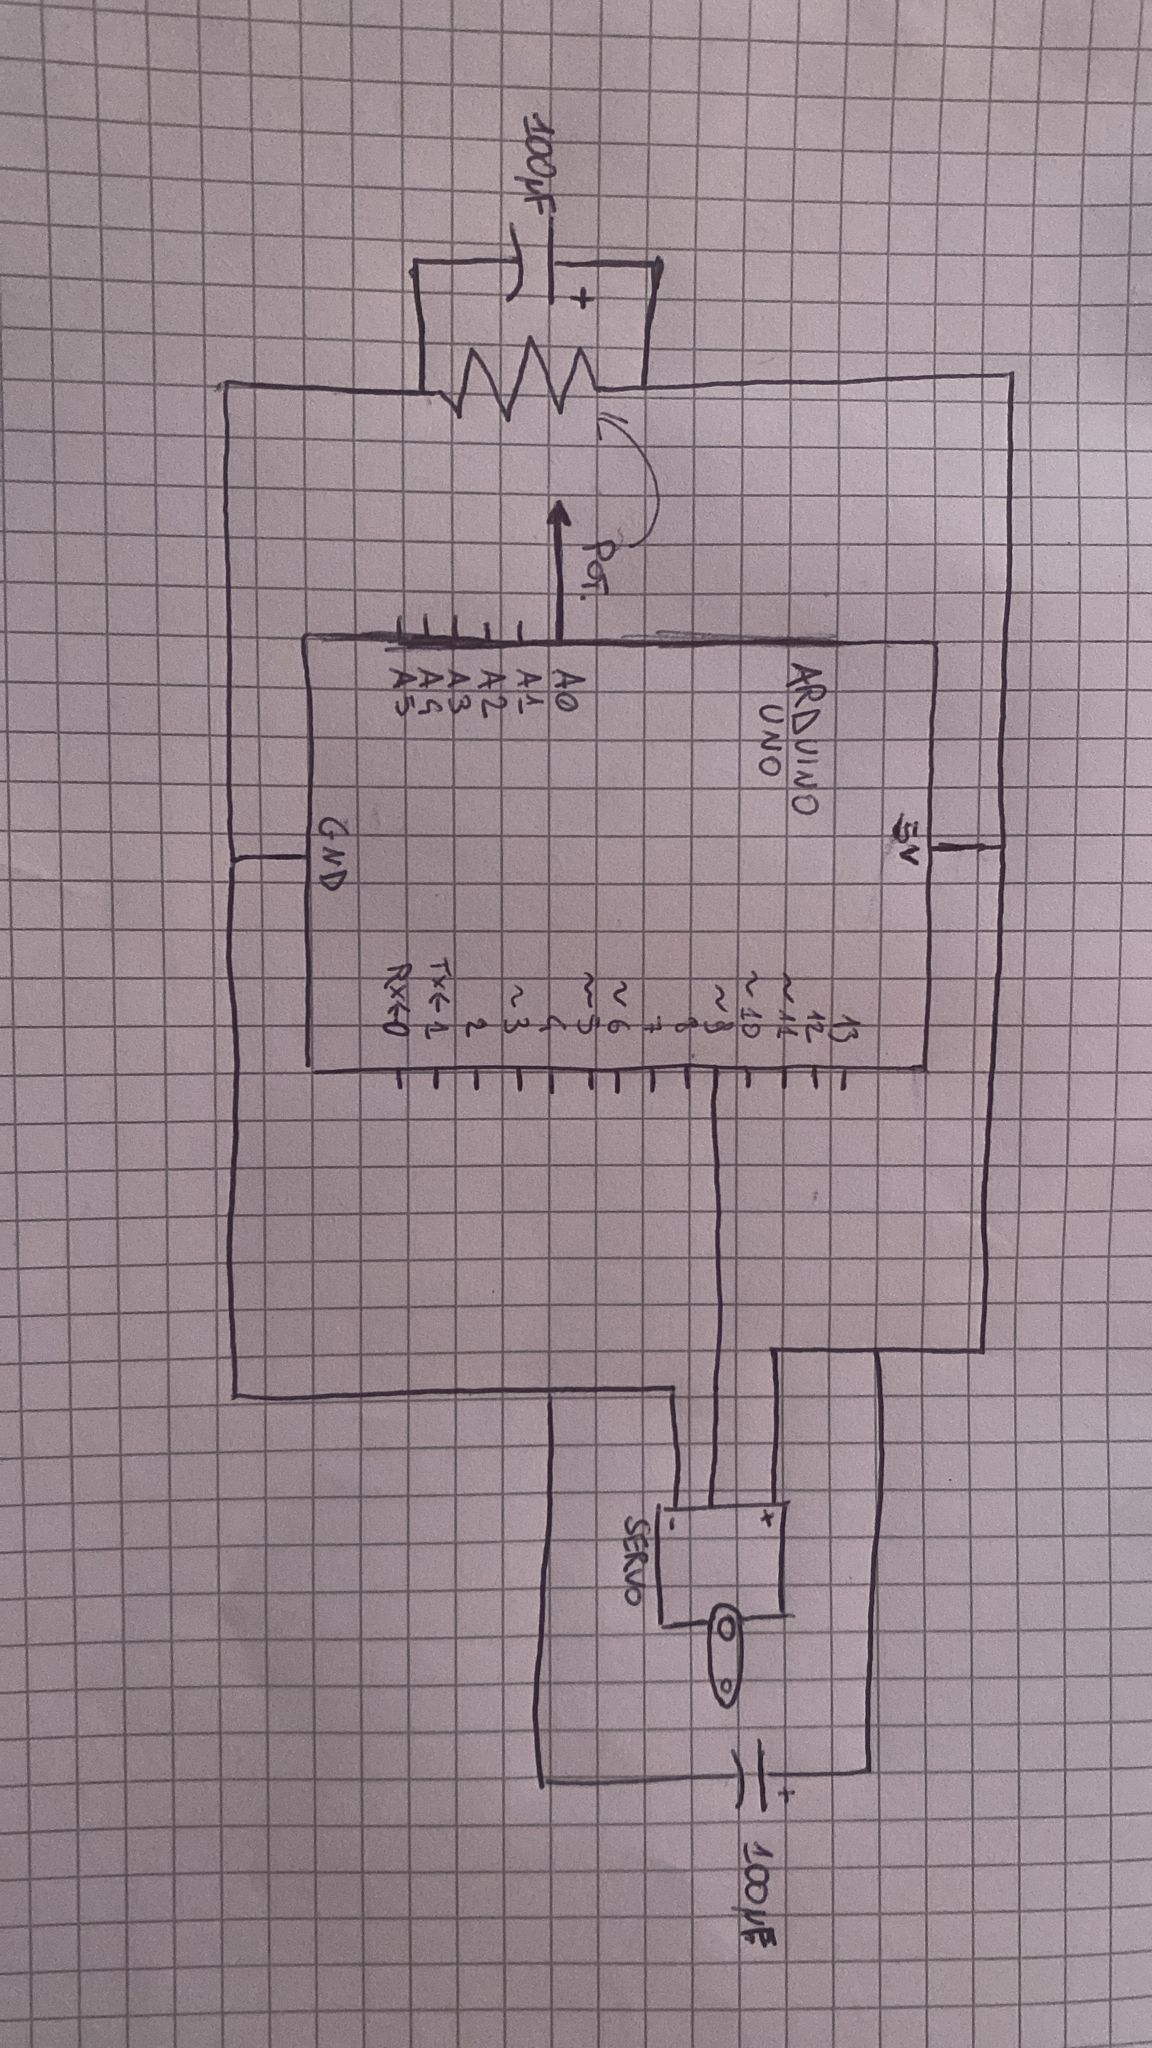 100µF
+
Pot.
ARDUINO
UNO
5V
A0
A1
A2
A3
A4
A5
GND
13
12
~11
~10
~9
8
7
~6
~5
4
~3
2
TX←1
RX←0
+
-
SERVO
+
100µF